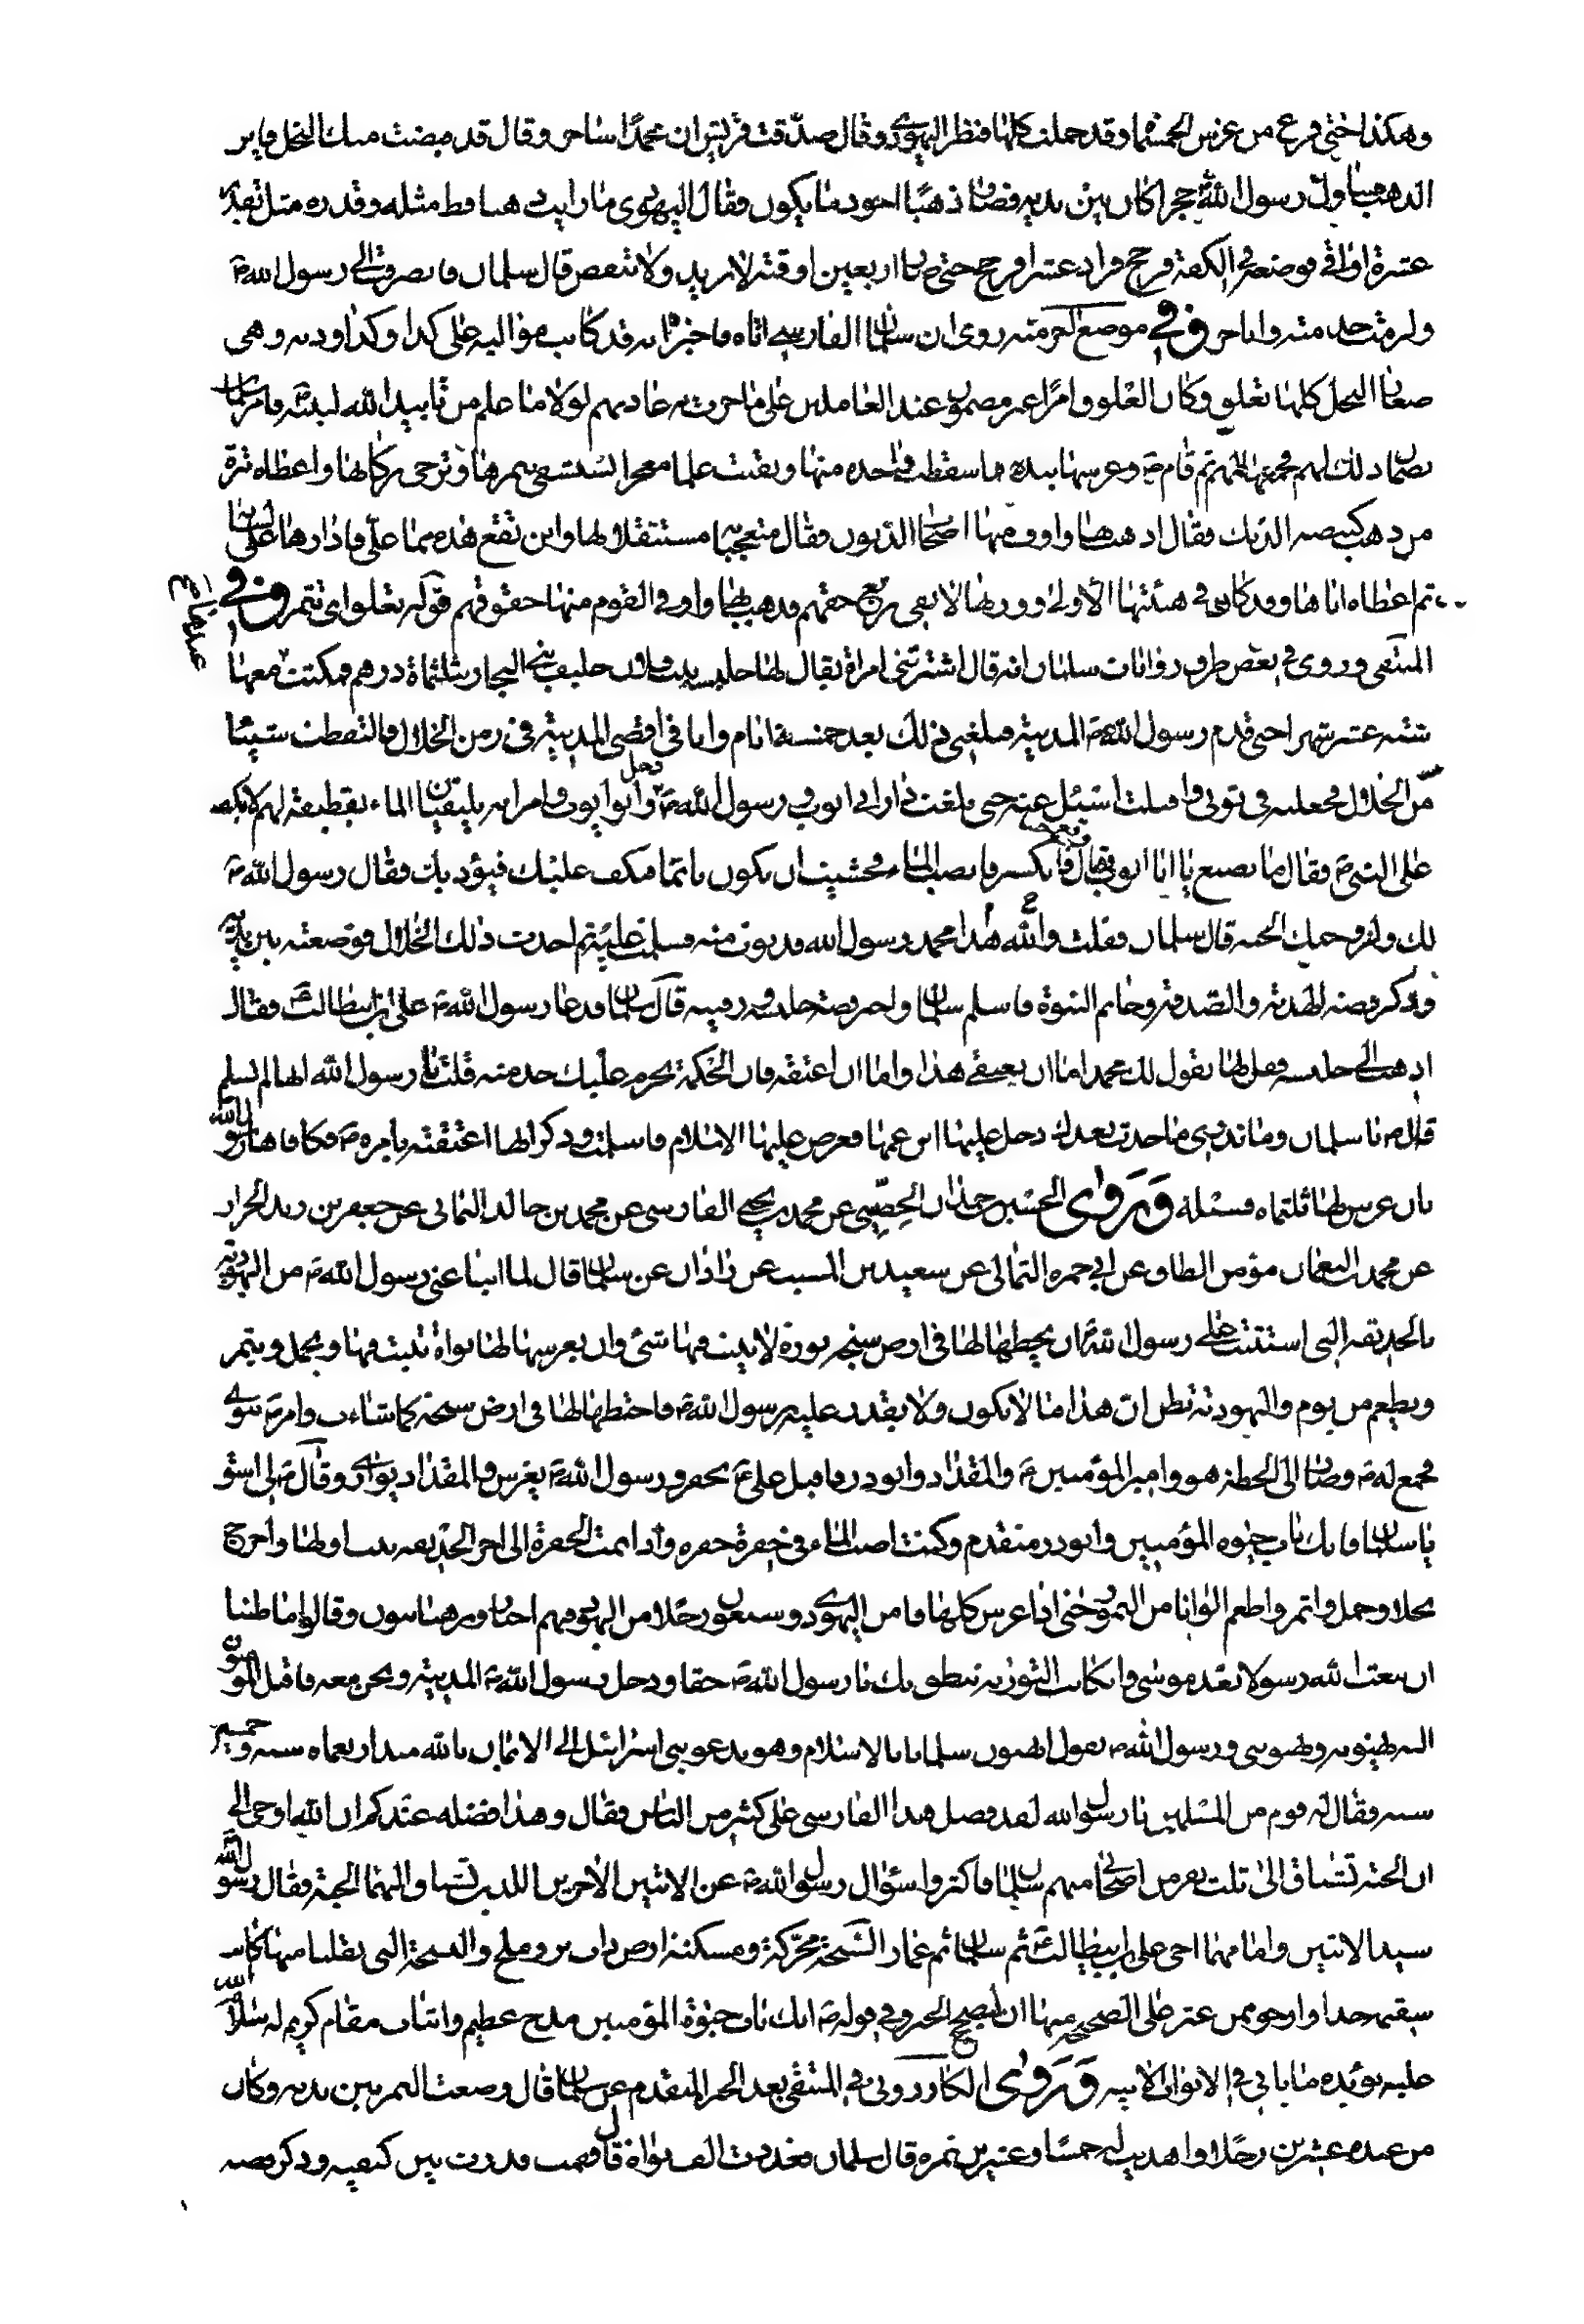 وهكذا حتى فرغ من غرس الخمسمائة وقد حملت كلها فنظر اليهودي وقال صدقت قريش ان محمدا ساحر وقال قد قبضت منك النخل فاين
الذهب فتناول رسول الله حجرا كان بين يديه فصار ذهبا اجود ما يكون فقال اليهودي ما رايت ذهبا قط مثله وقدره مثل تقدير
عشرة اواقي فوضعه في الكفة فرجح فزاد عشرا فرجح حتى صار اربعين اوقية لا تزيد ولا تنقص قال سلمان فانصرفت الى رسول الله ص
فلزمت خدمته وانا حر وفي موضع اخر منه روى ان سلمان الفارسي اتاه فاخبره انه قد كاتب مواليه على كذا وكذا ودية وهي
صغار النخل كلها تعلق وكان العلوق امرا غير مضمون عند العاملين على ما جرت به عادتهم لولا ما علم من تاييد الله لنبيه فامر سلمان
بضمان ذلك لهم فجمعها لهم ثم قام ص وغرسها بيده فما سقطت واحدة منها وبقيت علما معجزا يستشفى بثمرها وترجى بركاتها واعطاه تبرة
من ذهب كبيضة الديك فقال اذهب بها واوف منها اصحاب الديون فقال متعجبا مستقلا لها واين تقع هذه مما علي فادارها على لسانه
ثم اعطاه اياها وقد كانت في هيئتها الاولى ووزنها لا يفي بربع حقهم فذهب بها واوفى القوم منها حقوقهم قوله تعلق اي تثمر وفي
المنتقى وروى في بعض طرف روايات سلمان انه قال اشترتني امراة يقال لها حليسة بنت فلان حليف بني النجار بثلثمائة درهم فمكثت معها
ستة عشر شهرا حتى قدم رسول الله ص المدينة فبلغني ذلك بعد خمسة ايام وانا في اقصى المدينة في زمن الخلال فالتقطت شيئا
من الخلال فجعلته في ثوبي واقبلت اسئل عنه حتى بلغت دار ابي ايوب في رسول الله ص وابو ايوب وامراته يلتقيان الماء بقطيفة لهم لا يكف
على النبي ص فقال ما تصنع يا ابا ايوب فقال انكسر فانصب الماء فخشيت ان يكون نائما فيكف عليك فيؤذيك فقال رسول الله ص
لك ولزوجتك الجنة قال سلمان فقلت والله هذا محمد رسول الله فدنوت منه فسلمت عليه ثم اخذت ذلك الخلال فوضعته بين يديه
وذكر قصة الهدية والصدقة وخاتم النبوة فاسلم سلمان واخبر قصة حليسة قال سلمان فدعا رسول الله ص علي بن ابي طالب ع فقال
اذهب الى حليسة فقل لها يقول لك محمد اما ان تعتقي هذا واما ان اعتقه فان الحكمة تحرم عليك خدمته فقلت يا رسول الله انها لم تسلم
قال ص يا سلمان وما تدري ما حدث بعدك دخل عليها ابن عمها فعرض عليها الاسلام فاسلمت وذكر انها اعتقته بامره ص فكافاها رسول الله
بان غرس لها ثلثمائة فسيلة وروى الحسين بن حمدان الحضيني عن محمد بن يحيى الفارسي عن محمد بن خالد اليماني عن جعفر بن زيد الخزاز
عن محمد بن النعمان مؤمن الطاق عن ابي حمزة الثمالي عن سعيد بن المسيب عن زاذان عن سلمان قال لما ابتاعني رسول الله ص من اليهودية
بالحديقة التي استثنت على رسول الله ان يخططها لها في ارض سبخة بورة لا ينبت فيها شئ وان يغرسها لها نواة تثبت فيها وتحمل وتثمر
ويطعم من يوم واليهودية تظن ان هذا ما لا يكون ولا يقدر عليه رسول الله ص فاختطها لها في ارض سبخة كما شاءت وامر ص بنوى
فجمع له ص وصار الى الخطة هو وامير المؤمنين ع والمقداد وابو ذر فاقبل علي ع يحفر ورسول الله ص يغرس والمقداد يواري وقال ص لي اسق
يا سلمان فانك باب حيوة المؤمنين وابو ذر متقدم وكنت اصب الماء في حفرة حفرة واذا تمت الحفرة الى اخر الحديقة اولها واخرج
نخلا وحمل واثمر واطعم الوانا من التمور حتى اذا غرس كلها فامن اليهودي وسبعون رجلا من اليهود فيهم احبار ورهبانيون وقالوا ما ظننا
ان يبعث الله رسولا بعد موسى وان كانت التورية تنطق بك يا رسول الله ص حقا ودخل رسول الله ص المدينة ونحن معه فاقبل المؤمنون
يقول سلمان بالاسلام وهو يدعو بني اسرائيل الى الايمان بالله منذ اربعمائة سنة وخمسين
سنة فقال له قوم من المسلمين يا رسول الله لقد فضل هذا الفارسي على كثير من الناس فقال وهذا فضله عندكم ان الله اوحى الي
ان الجنة تشتاق الى ثلث نفر من اصحابي منهم سلمان فاكثروا سؤال رسول الله ص عن الاثنين الاخرين اللذين تشتاق اليهما الجنة فقال رسول الله
سيد الاثنين وامامهما اخي علي بن ابي طالب ع ثم سلمان ثم عمار السبخة محركة ومسكنة ارض ذات نز وملح والنسخة التي نقلنا منها كانت
سقيمة جدا وارجو ممن عثر على الصحيح منها ان يصحح الخبر وفي قوله ص انك باب حيوة المؤمنين مدح عظيم واثبات مقام كريم له سلام الله
عليه يؤيده ما ياتي في الابواب الاتية وروى الكازروني في المنتقى بعد الخبر المتقدم عن سلمان قال وضعت التمر بين يديه وكان
من عنده عشرين رجلا واهديت له خمسا وعشرين تمرة قال سلمان فعددت الف نواة قال وقمت فدرت بين كتفيه وذكر قصة